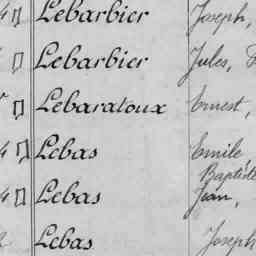 Lebarbier Joseph,
Lebarbier Jules,
Lebaratoux Ernest,
4 Lebas Emile,
Baptiste
4 Lebas Jean,
Lebas Joseph